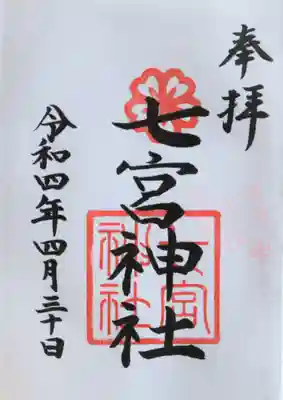 奉拝
七宮神社
七宮神社
令和四年四月三十日